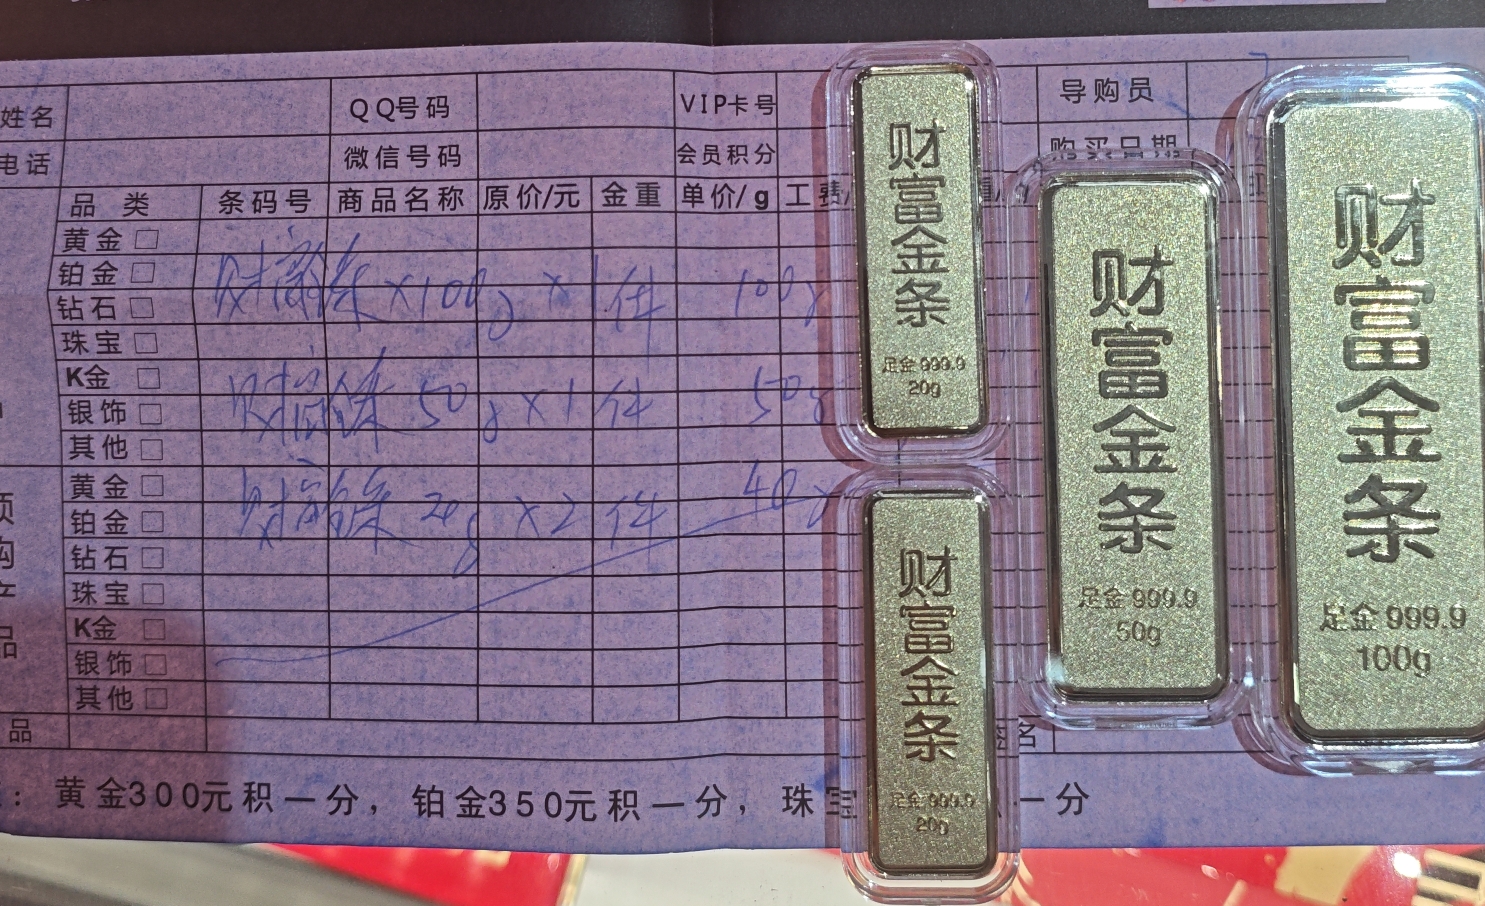 姓名 QQ号码 VIP卡号 导购员
电话 微信号码 会员积分 购买日期
品类 条码号 商品名称 原价/元 金重 单价/g 工费/
黄金□
铂金□
财富金条×100g×1件 100g
钻石□
珠宝□
K金□
财富金条 50g×1件 50g
银饰□
其他□
黄金□
财富金条 20g ×2件 40g
铂金□
钻石□
珠宝□
K金□
银饰□
其他□
品 签名
：黄金300元积一分，铂金350元积一分，珠宝 一分
财富金条
足金 999.9
20g
财富金条
足金 999.9
20g
财富金条
足金 999.9
50g
财富金条
足金 999.9
100g